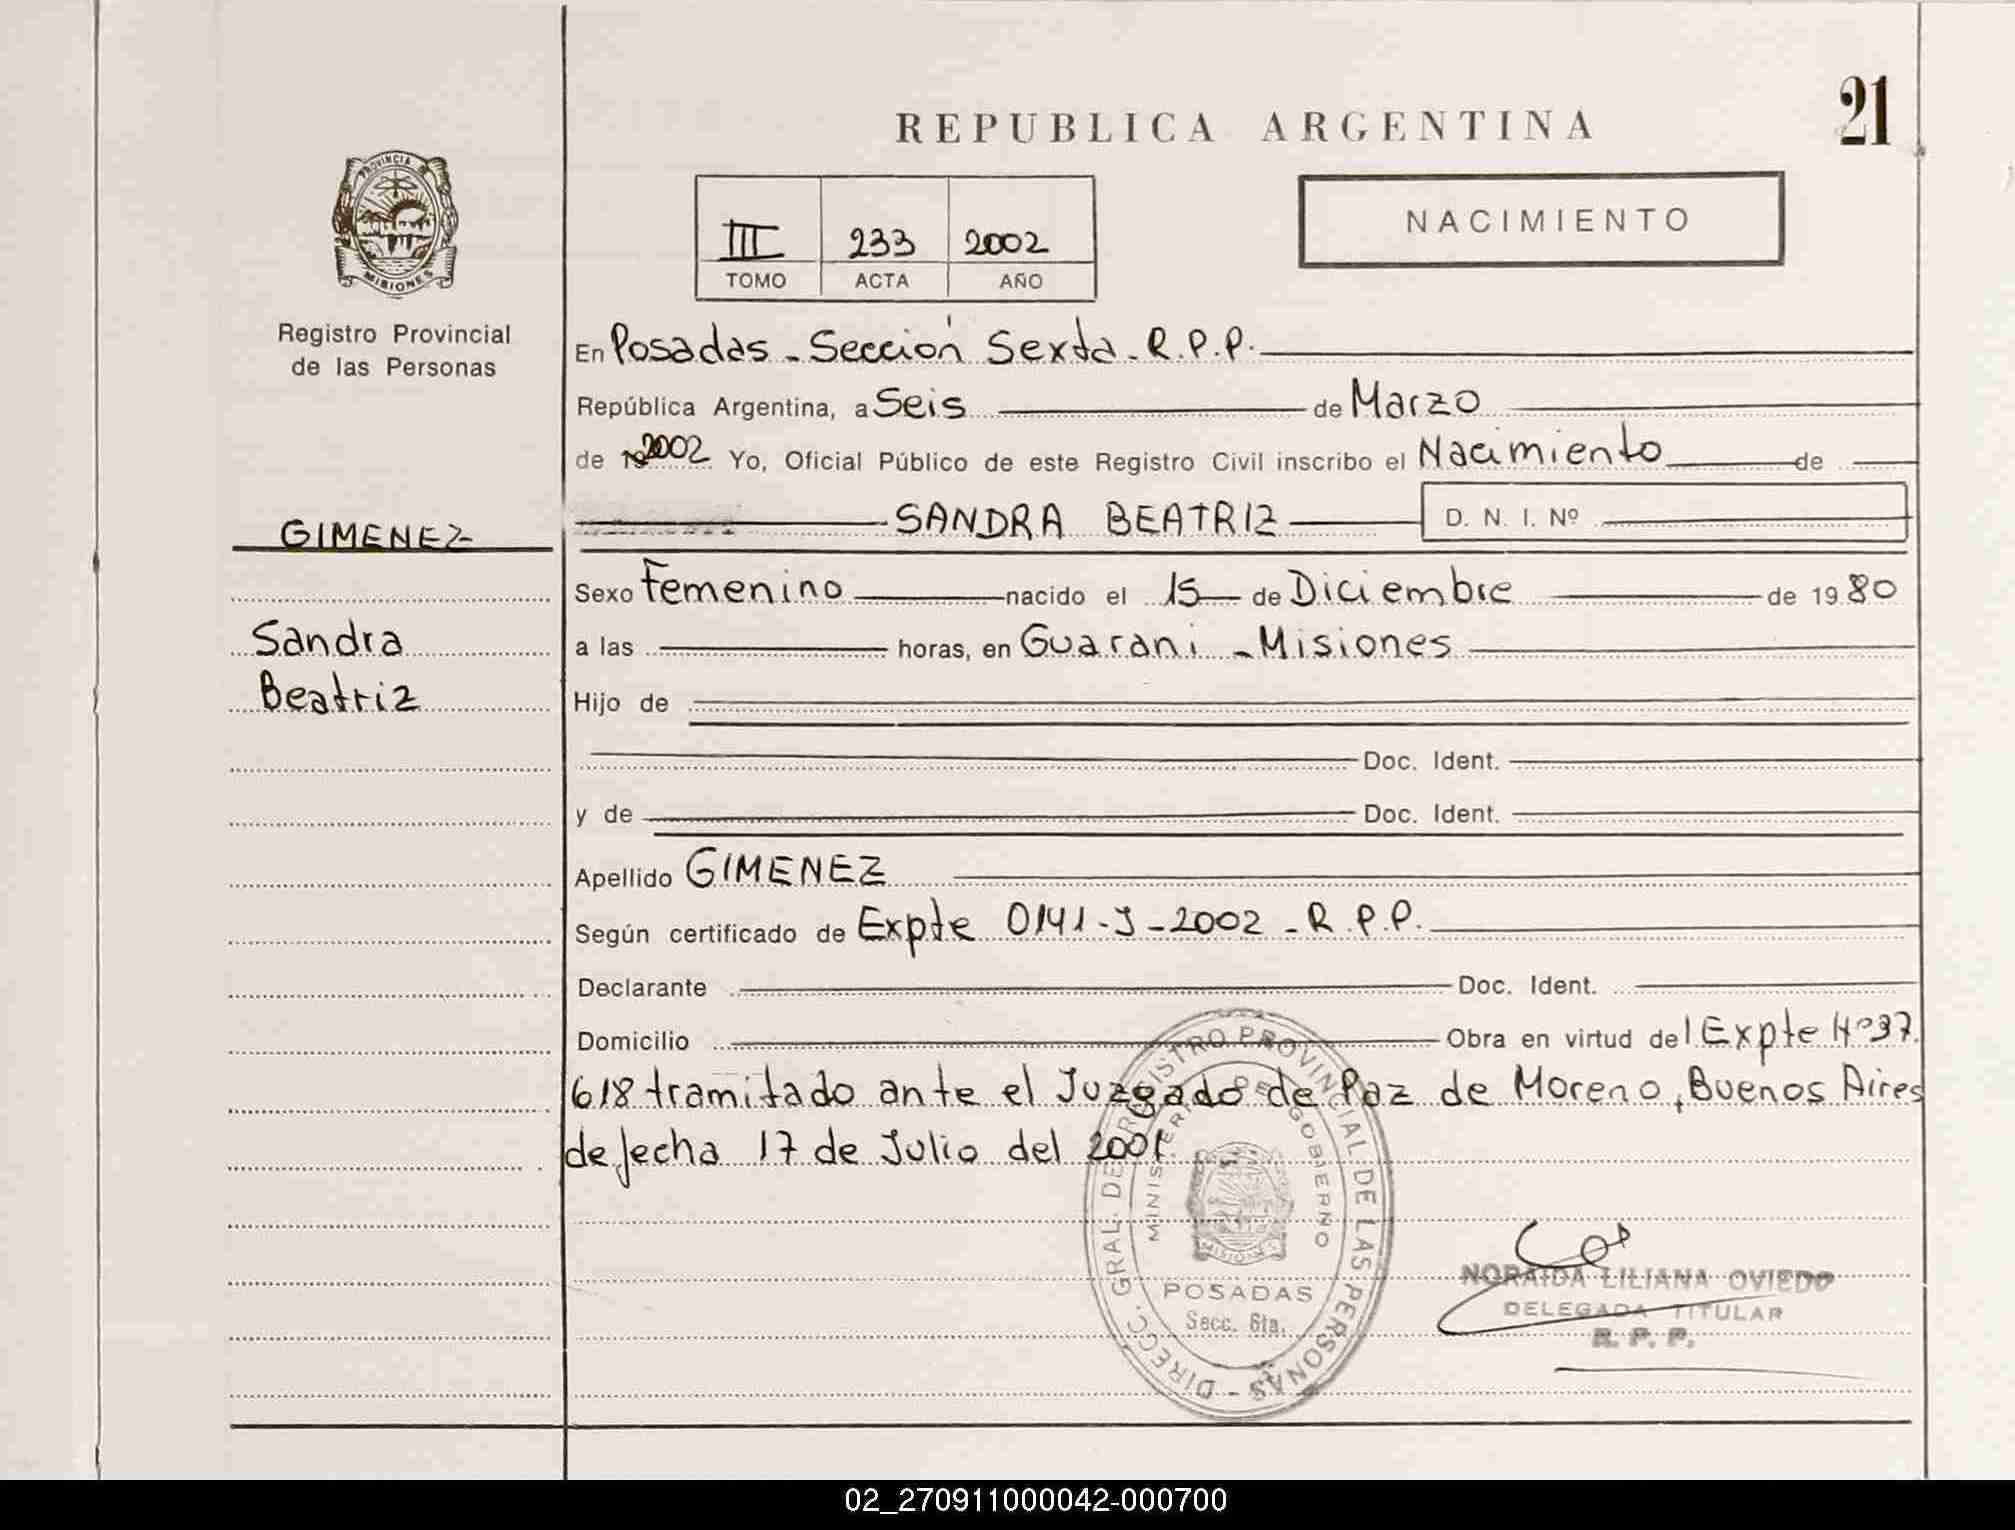 REPUBLICA ARGENTINA
21
PROVINCIA DE
MISIONES
Registro Provincial
de las Personas
III 233 2002
TOMO ACTA AÑO
NACIMIENTO
En Posadas - Sección Sexta - R.P.P.
República Argentina, a Seis de Marzo
de 2002 Yo, Oficial Público de este Registro Civil inscribo el Nacimiento de
GIMENEZ
SANDRA BEATRIZ D. N. I. Nº
Sexo Femenino nacido el 15 de Diciembre de 1980
Sandra
a las horas, en Guarani - Misiones
Beatriz
Hijo de
Doc. Ident.
y de Doc. Ident.
Apellido GIMENEZ
Según certificado de Expte 0141-J-2002 - R.P.P.
Declarante Doc. Ident.
Domicilio Obra en virtud del Expte Nº 37.
618 tramitado ante el Juzgado de Paz de Moreno, Buenos Aires
de fecha 17 de Julio del 2001.
DIRECC. GRAL. DEL REGISTRO PROVINCIAL DE LAS PERSONAS -
MINISTERIO DE GOBIERNO
MISIONES
POSADAS
Secc. 6ta.
NORAIDA LILIANA OVIEDO
DELEGADA TITULAR
R. P. P.
02_270911000042-000700